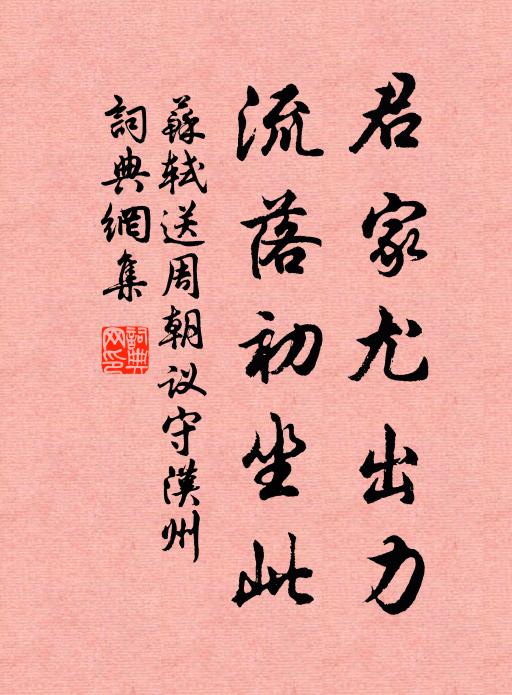 君家尤出力
流落初坐此
蘇軾送周朝议守漢州
詞典網集
詞典网印